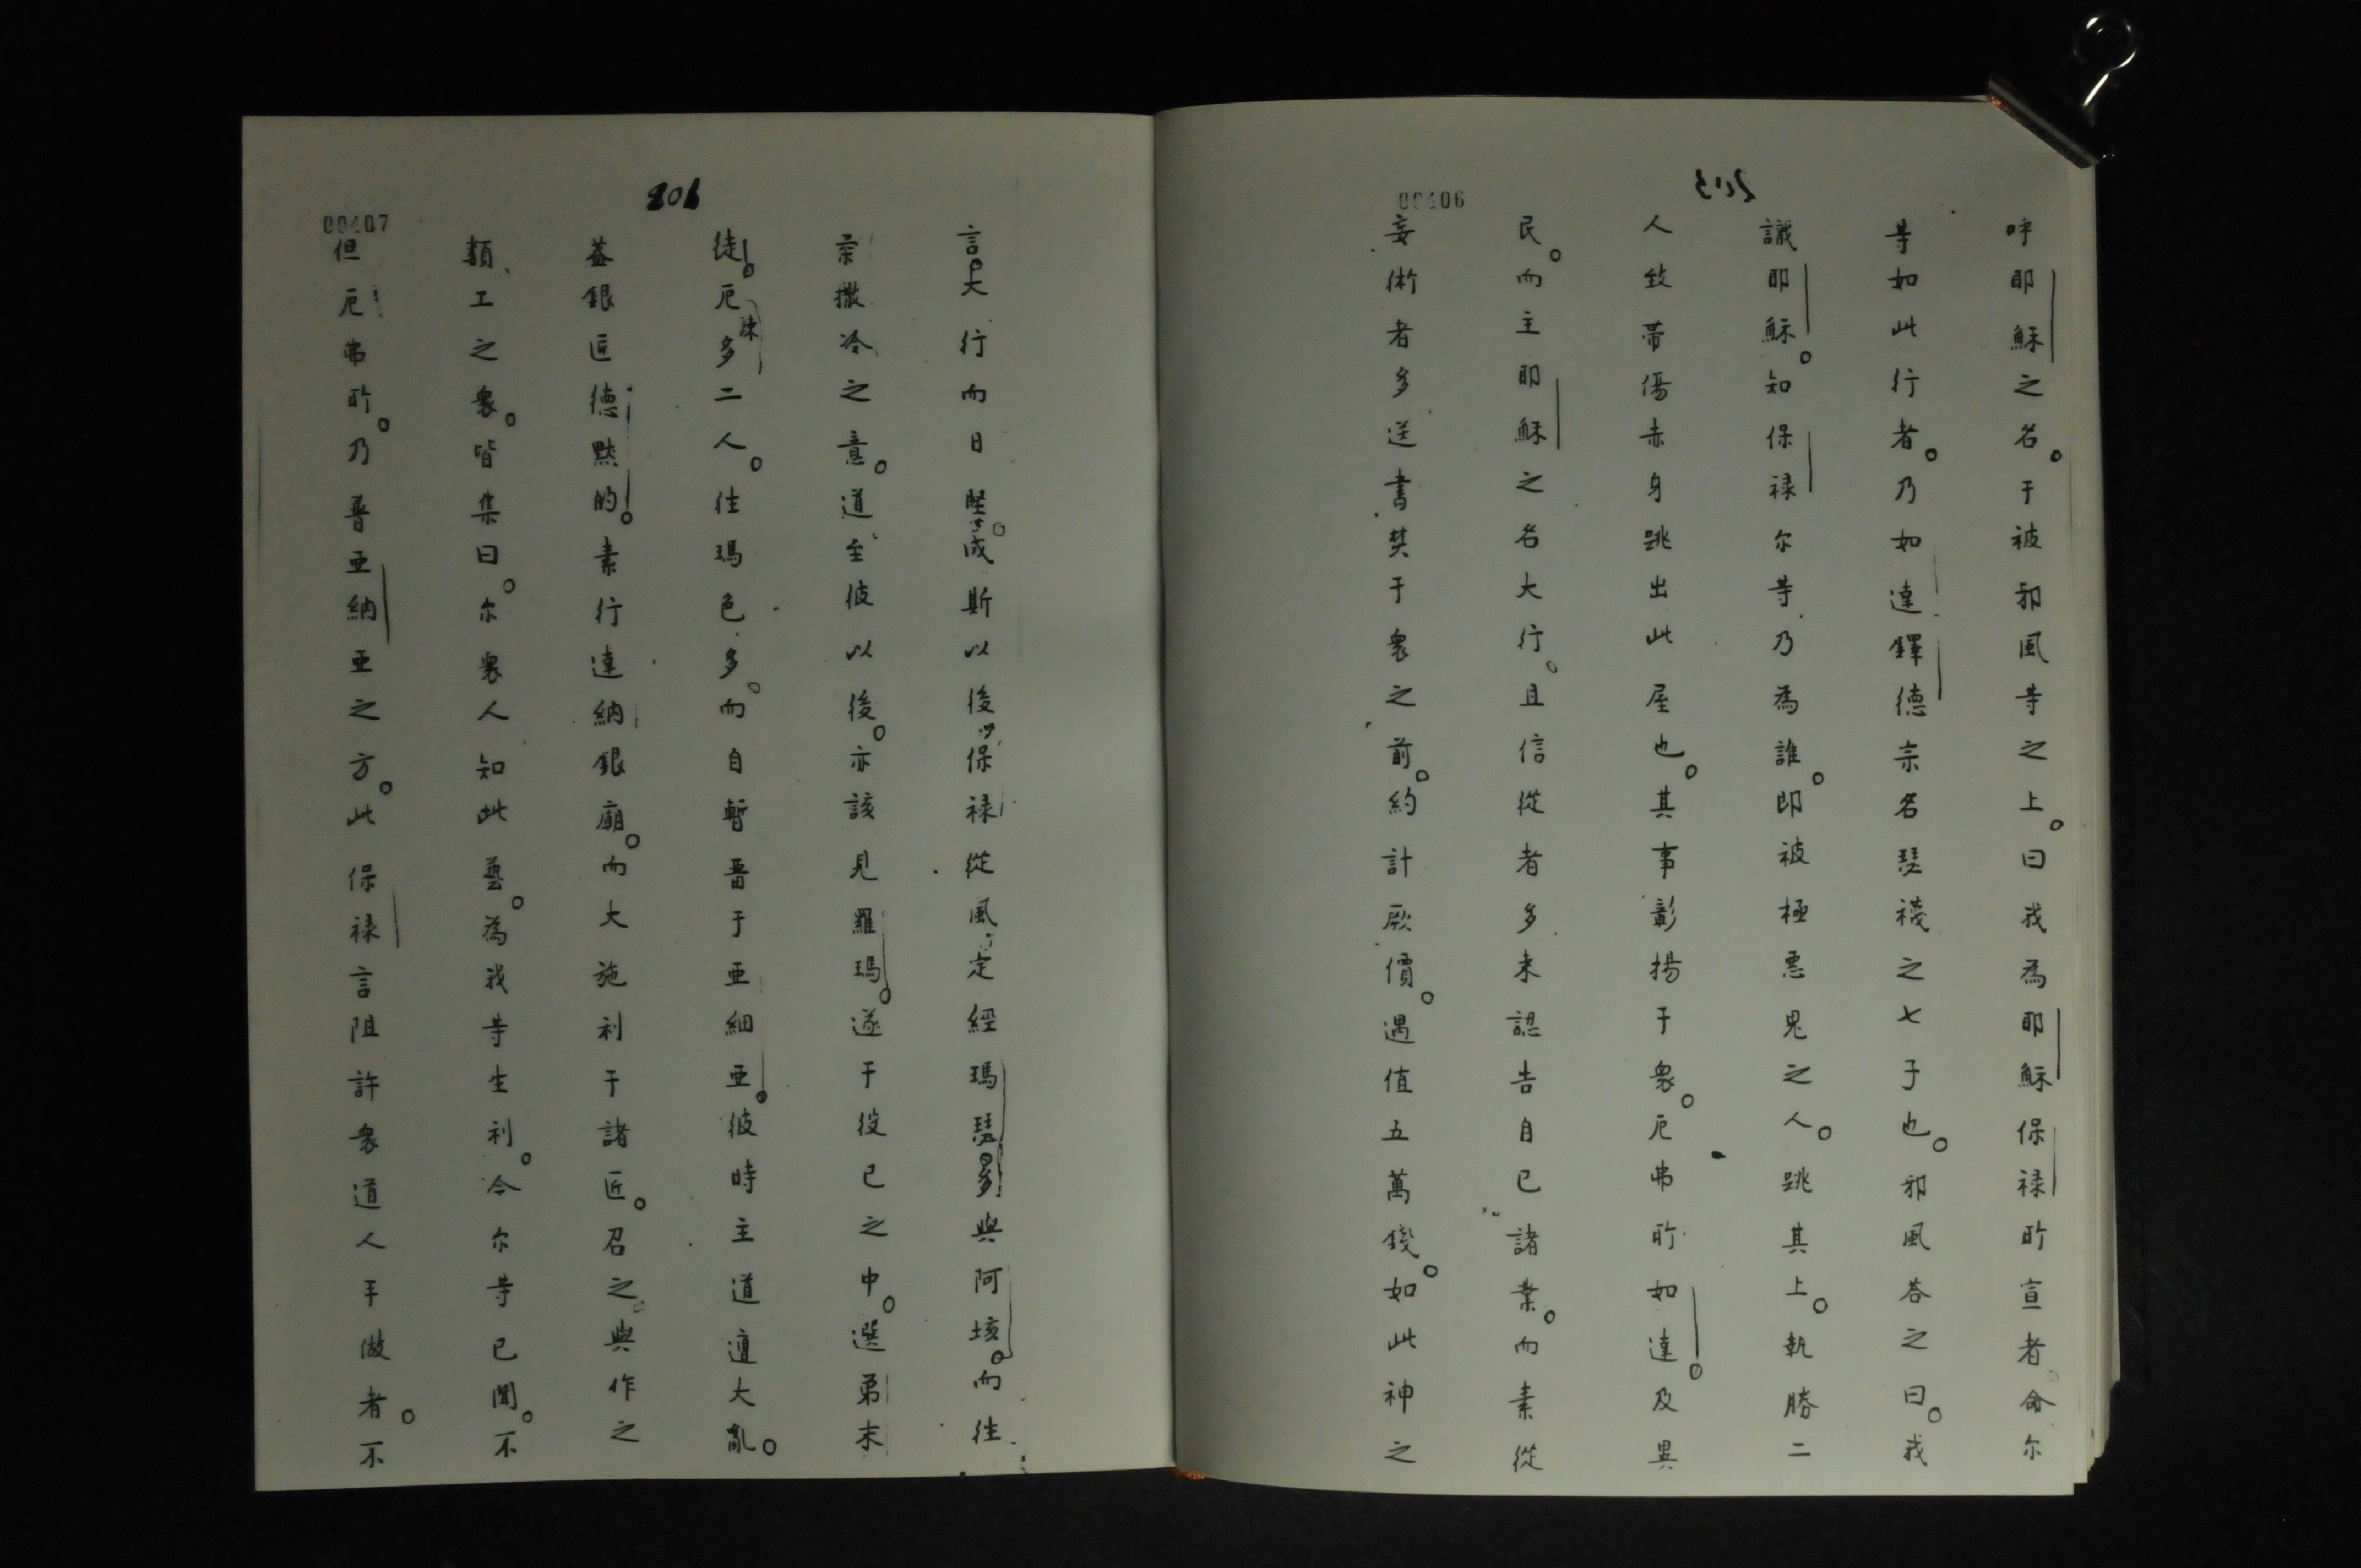 呼耶穌之名。于被邪風等之上。曰我為耶穌保祿所宣者。命尔
等如此行者。乃如達鐸德宗名瑟襪之七子也。邪風答之曰。我
識耶穌。知保祿尔等乃為誰。即被極悪鬼之人。跳其上。執勝二
人致帶傷赤身跳出此屋也。其事彰揚于衆。厄弗所如達。及異
民。而主耶穌之名大行。且信從者多来認告自已諸業。而素從
妄術者多送書焚于衆之前。約計厥價。遇值五萬錢。如此神之
00406
言。大行而日堅。成斯以後保祿從風定經瑪瑟多與阿垓。而往
柔撒冷之意。道至彼以後。亦該見羅瑪。遂于役已之中。選弟末
徒。厄辣多二人。往瑪色多。而自暫畱于亞細亞。彼時主道遭大亂。
葢銀匠德黙的。素行達納銀廟。而大施利于諸匠。召之。與作之
類、工之衆。皆集曰。尔衆人知此藝。為我等生利。今尔等已聞。不
但厄弗所。乃普亞納亞之方。此保祿言阻許衆道人手做者。不
206
00407